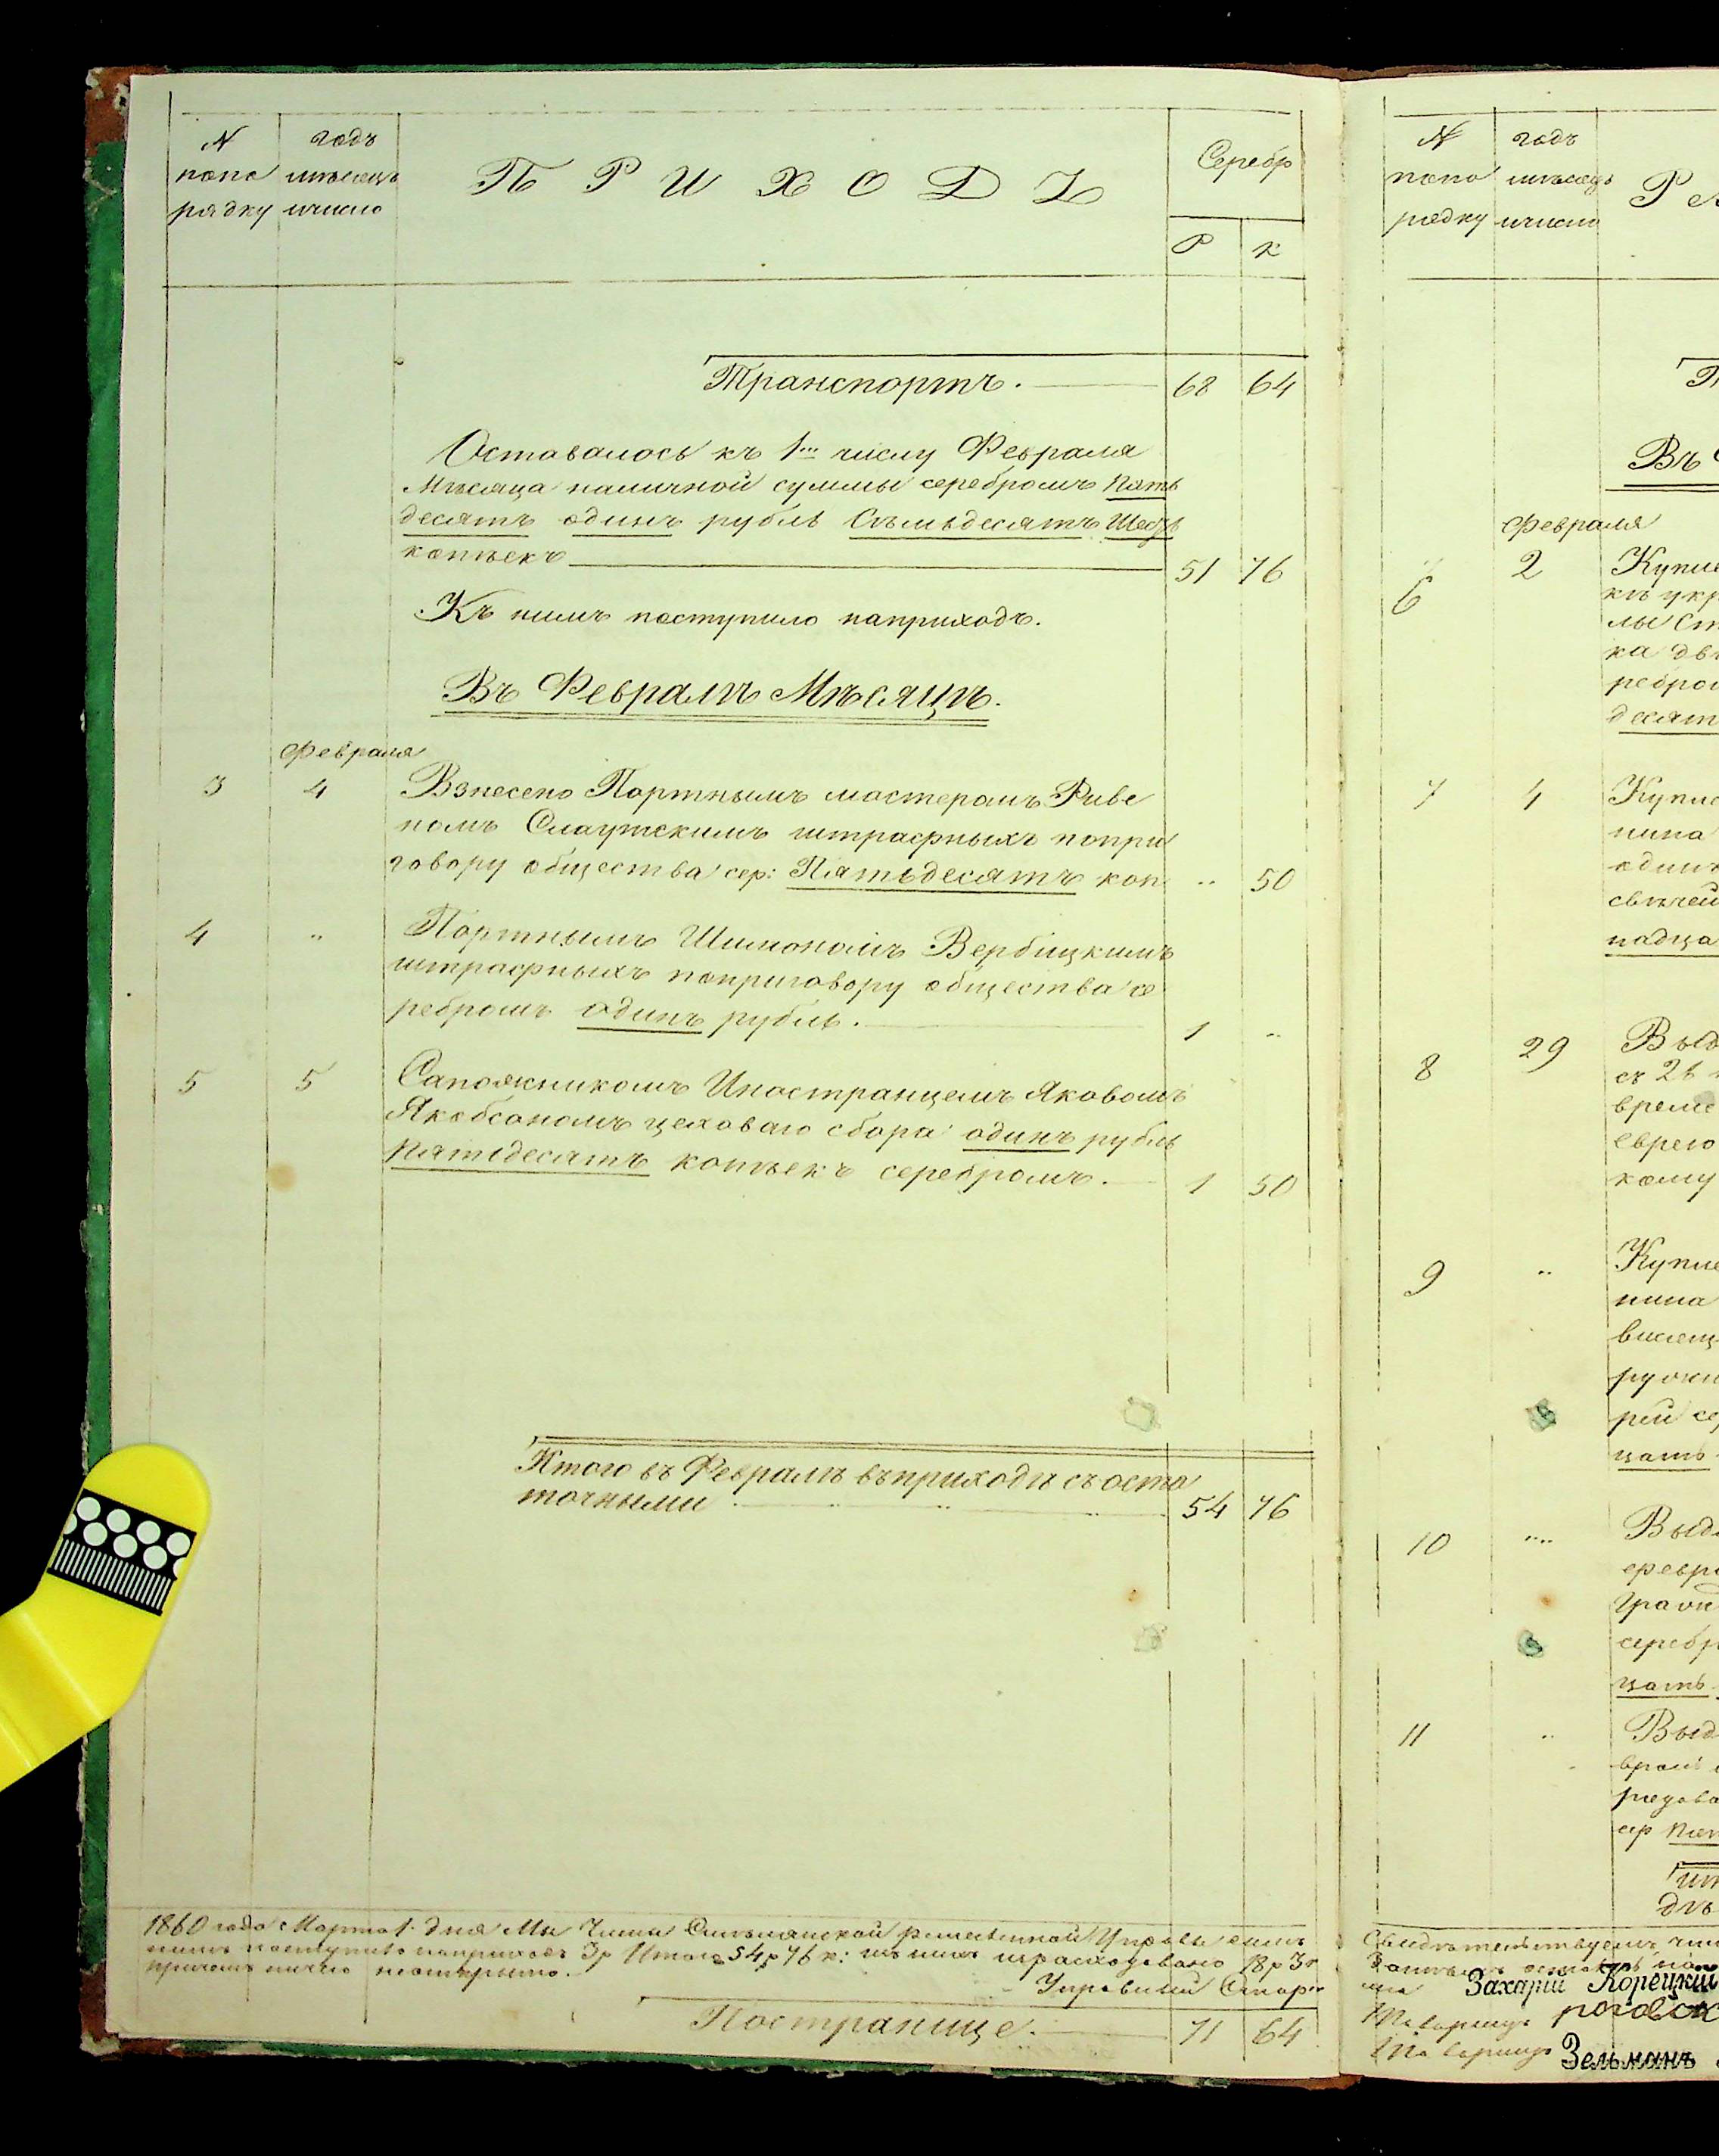 N
попо
рядку
годъ
мѣсяцъ
ичисло
ПРИХОДЪ
Серебр
Р
К
Транспортъ.
68 64
Оставалось къ 1му числу Февраля
Мѣсяца наличной суммы серебромъ Пять
десятъ одинъ рубль Семьдесятъ Шесть
копѣекъ
51 76
Къ нимъ поступило наприходъ.
Въ Февралѣ Мѣсяцѣ.
Февраля
3 4 Взнесено Портнымъ мастеромъ Руве
номъ Слауtскимъ штрафныхъ попри
говору общества сер: Пятьдесятъ коп. „ 50
4 „ Портнымъ Шимономъ Вербицкимъ
штрафныхъ поприговору общества се
ребромъ одинъ рубль. 1 „
5 5 Сапожникомъ Иностранцемъ Яковомъ
Якобсономъ цеховаго сбора одинъ рубль
Пятьдесятъ копѣекъ серебромъ. 1 50
Итого въ Февралѣ въприходѣ съоста
точными 54 76
1860 года Марта 1 дня Мы Члены Смѣлянской ремесленной Управы
нимъ поступило наприходъ 3р Итого 54 р 76 к: изъ нихъ израсходовано 18 р 3
причемъ ничего неоткрыто.
Управный Стар
Постранице. 71 64
N
попо
рядку
годъ
мѣсяцъ
ичисло
Ра
Въ
Февраля
6 2 Купле
къ укр
лы Ст
ка дв
ребром
десят
7 4 Купле
нина
одинъ
свѣчей
надца
8 29 Выд
съ 21
време
еврею
кому
9 „ Купле
нина
висящ
ружи
рей се
цать
10 „ Выд
февра
Граж
серебр
цать
11 „ Выд
вром
редова
сер Пят
Ит
дѣ
Свидѣтельствуемъ что
Захарій Корецкій
Товарищъ
Товарищъ Зельманъ